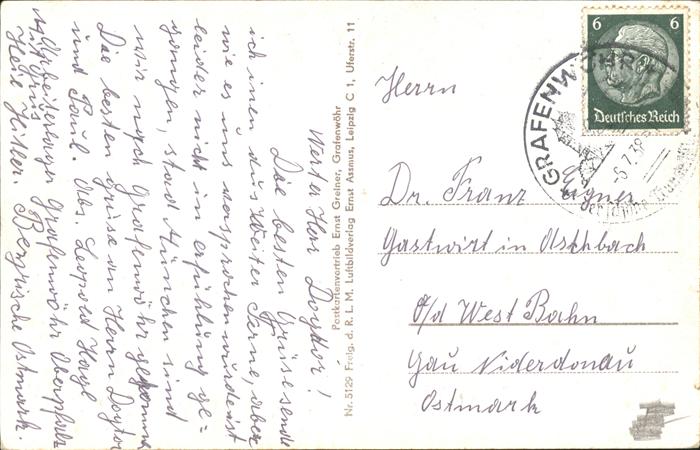 Werter Herr Doghtor!
Die besten Grüse sende
ich inen aus Weiter Ferne, aber
wie es uns versprochen wurde ist
leider nicht in erfühlung ge-
gangen, stad München sind
wir nach Grafenwöhr gekommen
Die besten Grüse an Herrn Dogtor
und Paul. Abs. Leopold Hagl
Arbeitslager Grafenwöhr Oberpfalz
Mit Grus
Heil Hitler. Bayrische Ostmark.
Postkartenvertrieb Ernst Greiner, Grafenwöhr
Nr. 5129 Freig. d. R. L. M. Luftbildverlag Ernst Assmus, Leipzig C 1, Uferstr. 11
6 6
Deutsches Reich
GRAFENWÖHR
-6.7.38
Herrn
Dr. Franz Eigner
Gastwirt in Aschbach
a/d West Bahn
Gau Niderdonau
Ostmark